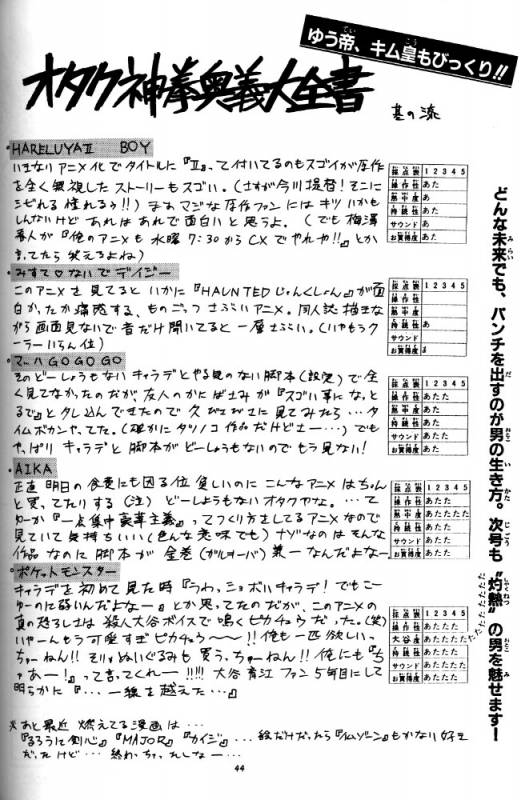 ゆう帝、キム皇もびっくり!!
オタク神拳奥義大全書
基の流
HARELUYAⅡ BOY
いきなりアニメ化でタイトルに『Ⅱ』って付いてるのもスゴイが原作
を全く無視したストーリーもスゴい。(さすが今川提督!そこに
シビれる憧れるぅ!!)まぁマジな原作ファンにはキツいかも
しんないけどあれはあれで面白いと思うよ。(でも梅澤
春人が『俺のアニメも水曜7:30からCXでやれや!!』とか
言ってたら笑えるよね)
採点表 1 2 3 4 5
操作性 あた
熱中度 あ
持続性 あた
サウンド あ
お買得度 あた
みすて♡ないでデイジー
このアニメを見てるといかに『HAUNTEDじゃんくしょん』が面
白かったか痛感する、ものごっつさぶいアニメ。同人誌描きな
がら画面見ないで音だけ聞いてると一層さぶい。(いやもうク
ーラーいらん位)
採点表 1 2 3 4 5
操作性
熱中度
持続性 あ
サウンド
お買得度
マッハGOGOGO
そのどーしょうもないキャラデとやる気のない脚本(設定)で全
く見てなかったのだが友人のかにぱさみが『スゴい事になっと
るで』とタレ込んできたので久びさに見てみたら…タ
イムボカンやってた。(確かにタツノコ作品だけどさー…)でも
やっぱりキャラデと脚本がどーしょうもないのでもう見ない!
採点表 1 2 3 4 5
操作性 あたた
熱中度 あた
持続性 あたた
サウンド あたた
お買得度 あたた
AIKA
正直明日の食費にも困る位貧しいのにこんなアニメはちゃん
と買ってたりする(注)どーしょうもないオタクやな。…て
ゆーか『一点集中豪華主義』ってつくり方さしてるアニメなので
見ていて気持ちいい(色んな意味でも)ナゾなのはそんな
作品なのに脚本が全巻(ガルオーバ)第一なんだよなー
採点表 1 2 3 4 5
操作性 あたたた
熱中度 あたたたた
持続性 あたたた
サウンド あたた
お買得度 あたたた
ポケットモンスター
キャラデを初めて見た時『うわっ、ショボいキャラデ!でもこー
ゆーのに弱いんだよなー』とか思ってたのだが、このアニメの
真の恐ろしさは殺人大谷ボイスで鳴くピカチュウだった。(笑)
いやーんもう可愛すぎピカチュウ〜〜!!俺も一匹欲しいっ
ちゅーねん!!そりゃぬいぐるみも買うっちゅーねん!!俺にも『ち
ゃあー!』って言ってくれー!!!!大谷育江ファン5年目にして
明らかに『…一線を越えた…』
採点表 1 2 3 4 5
操作性 あたたた
大谷度 あたたたたたたたたたたた
持続性 あたたたた
サウンド あたたた
お買得度 あたたたた
※あと最近燃えてる漫画は…
『るろうに剣心』『MAJOR』『カイジ』…絵だけだったら『仏ゾーン』もかなり好き
だったけど…終わっちったしなー…
どんな未来でも、パンチを出すのが男の生き方。次号も〝灼熱〟の男を魅せます!
44